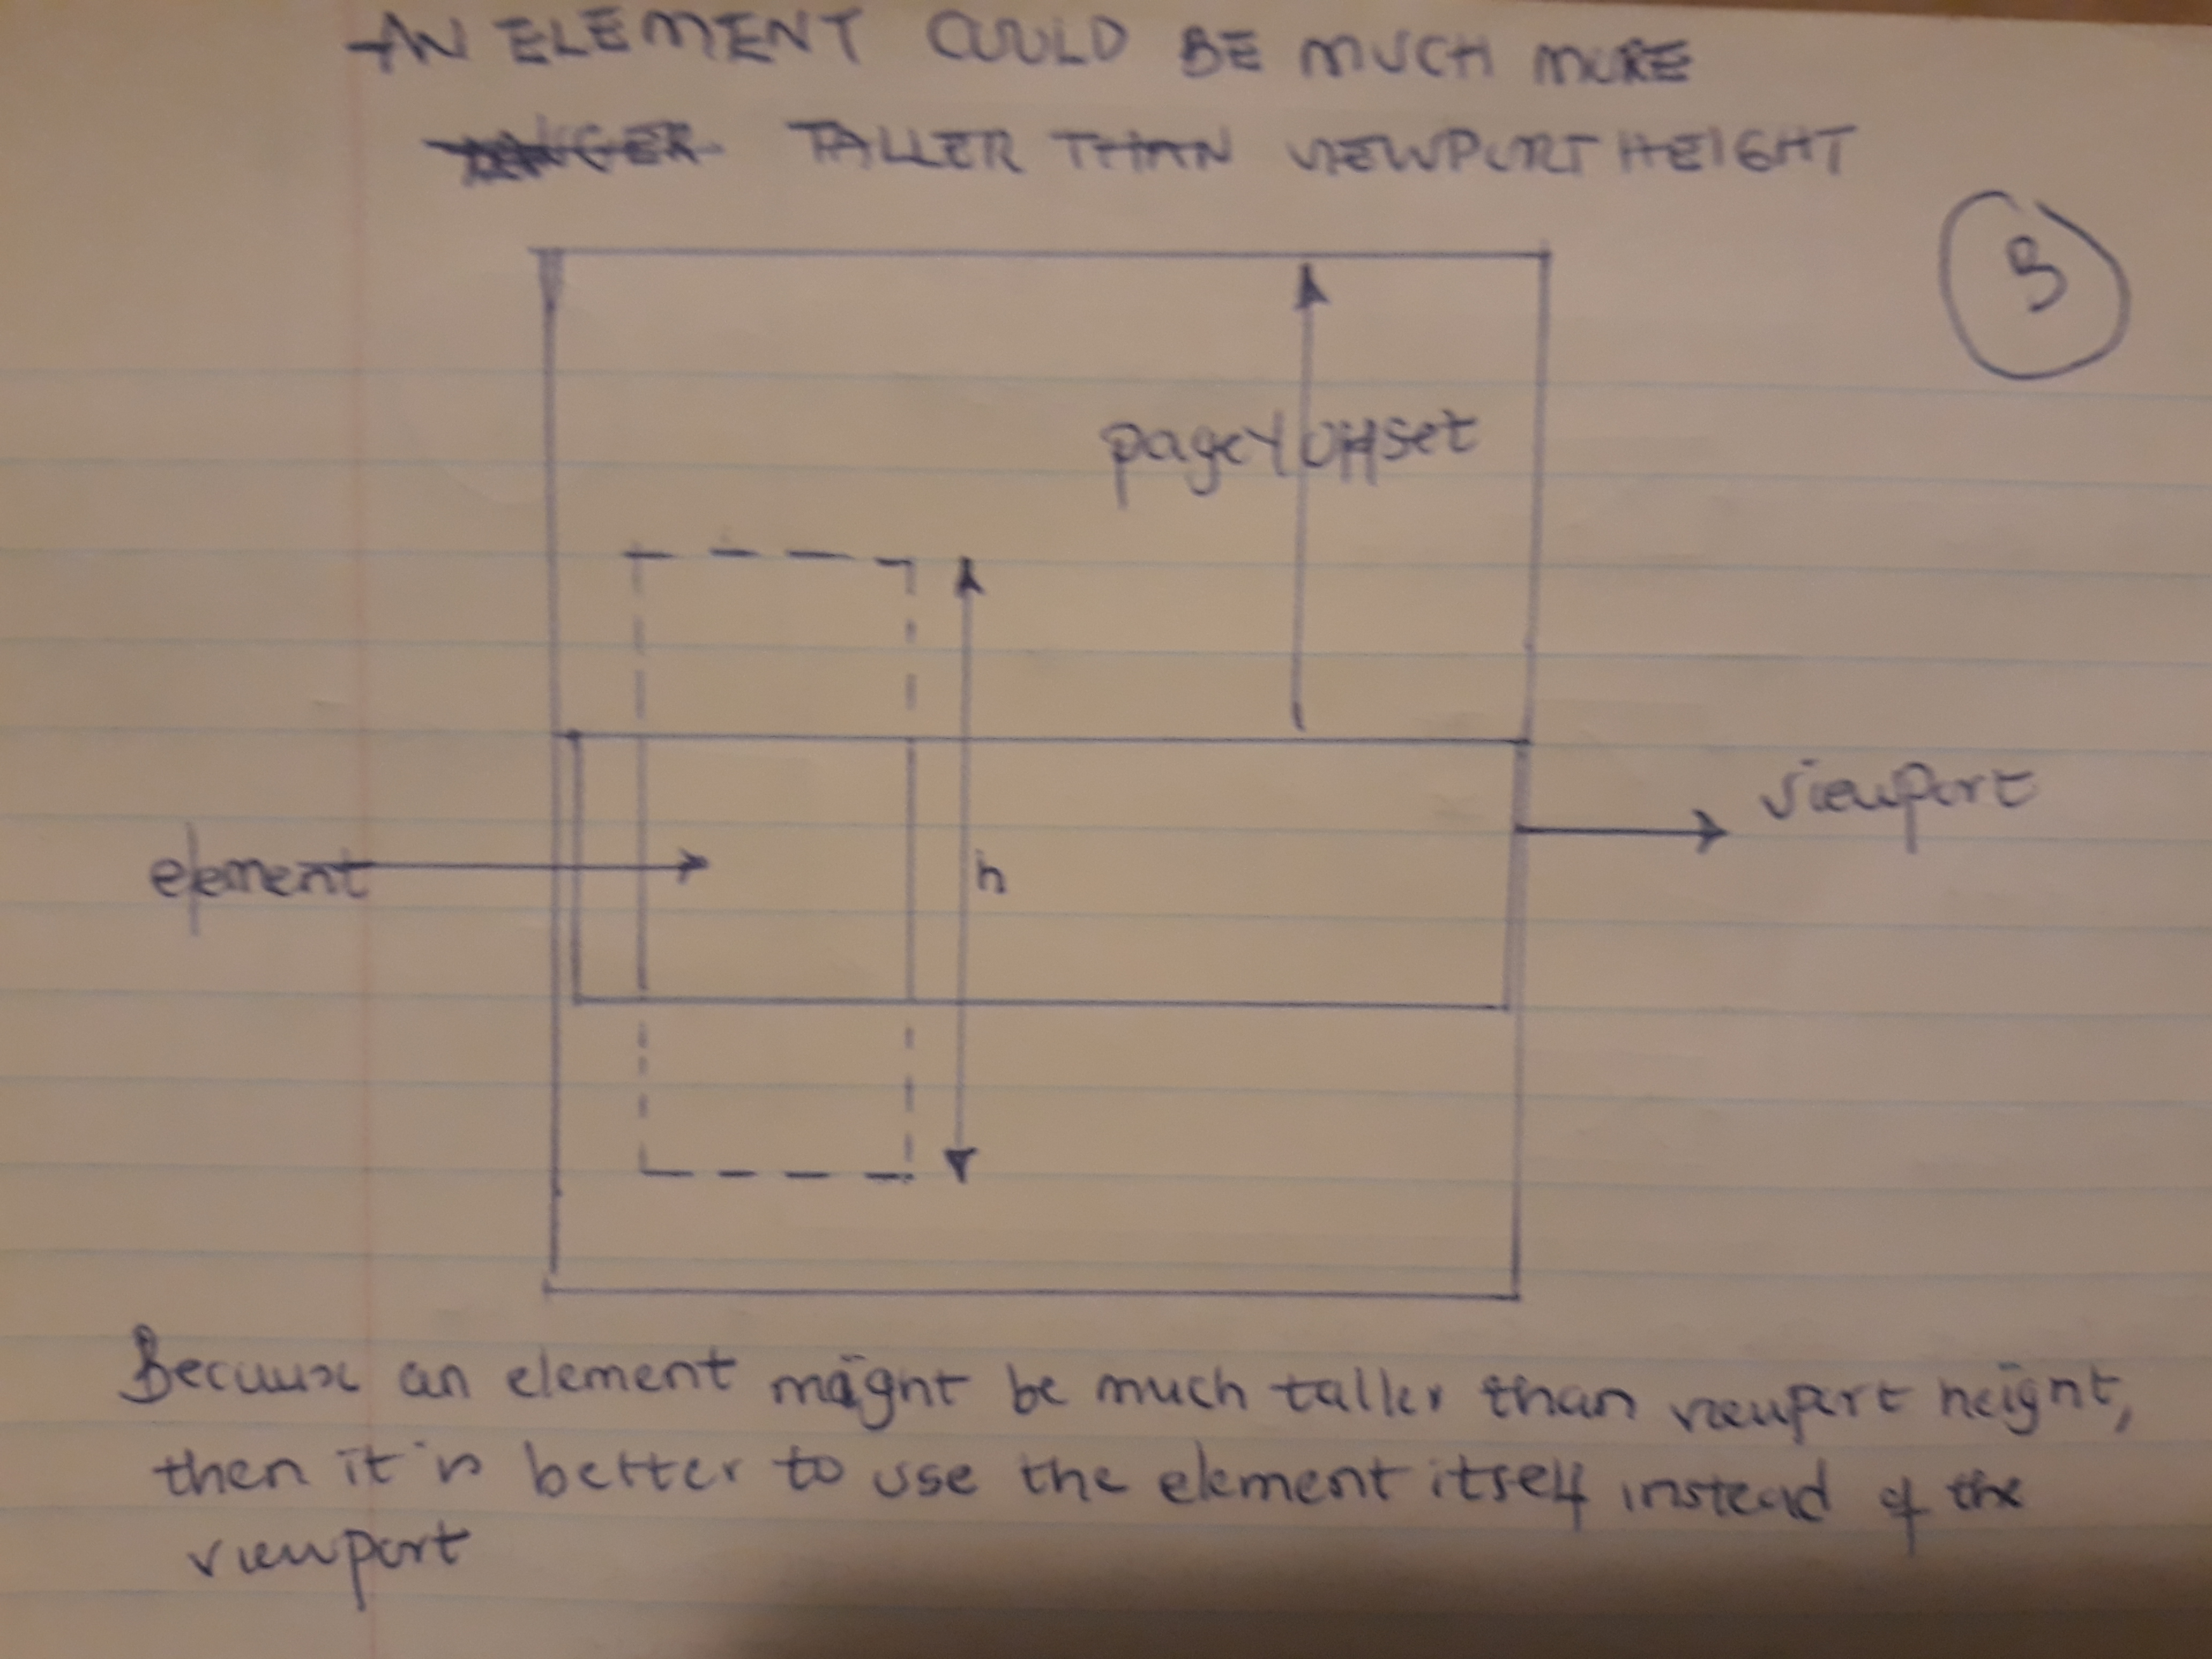 AN ELEMENT COULD BE MUCH MORE
TALLER THAN VIEWPORT HEIGHT
3
pageYOffset
viewport
element
h
Because an element might be much taller than viewport height,
then it is better to use the element itself instead of the
viewport